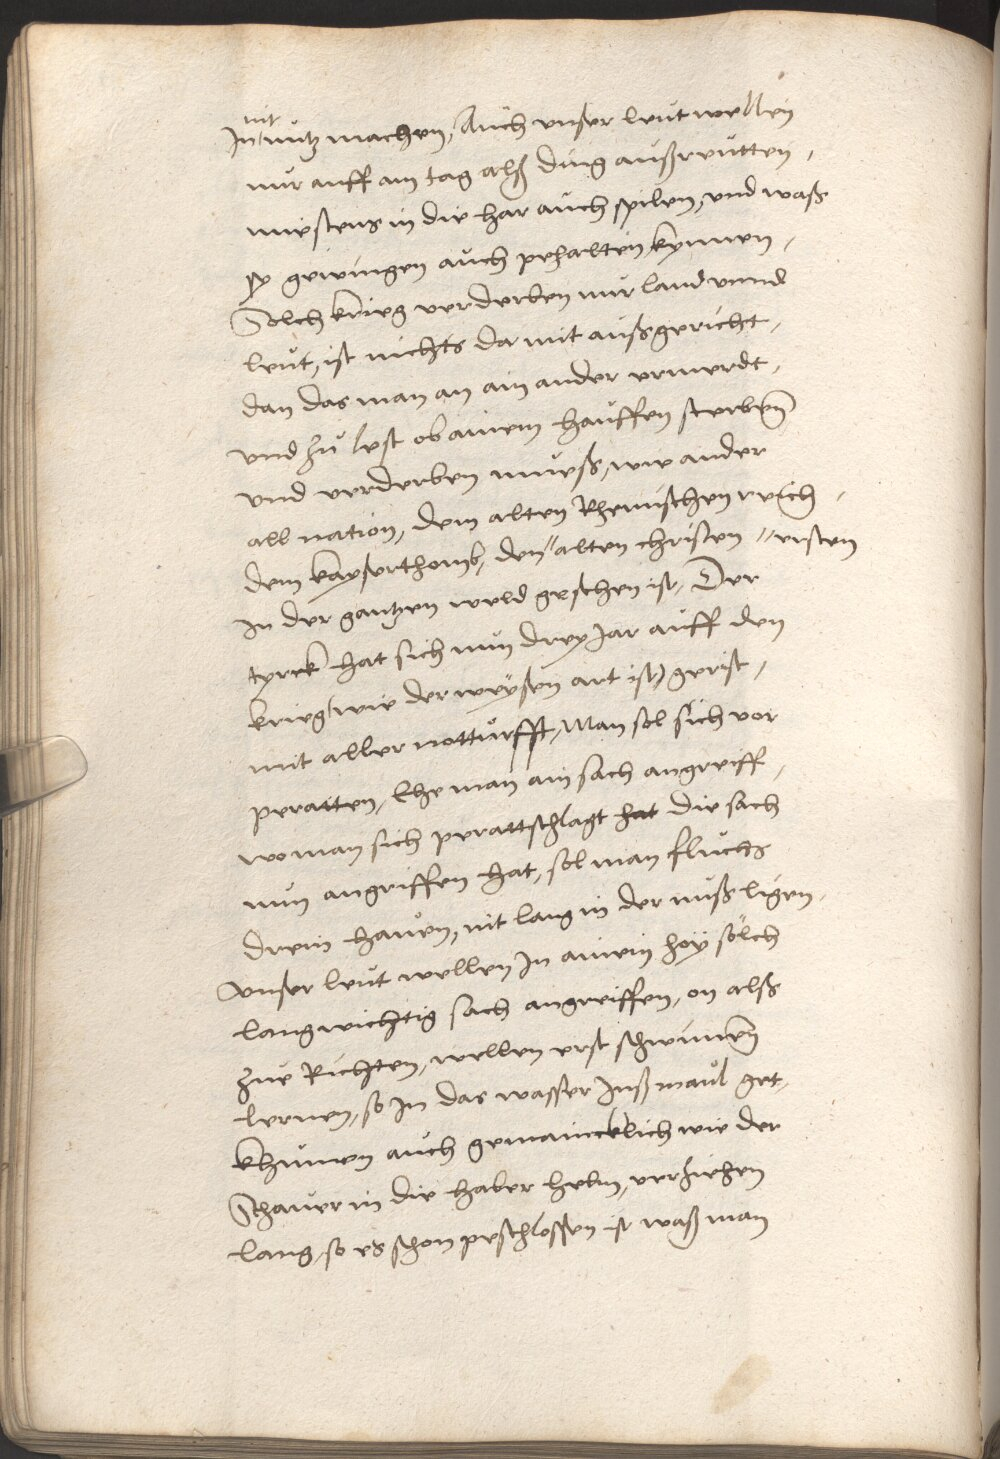 nit
In nutz machen, Auch unser leut wellen
nur auff am tag alß ding außreütten,
müestens in die har auch spilen, und waß
sy gewingen auch pehalten kynnen,
Solch krieg verderben nur land unnd
leut, ist nichts damit außgericht,
dan das man an ain ander ermerdt,
und zu lest ob ainem hauffen sterben
und verderben mueß, wie ander
all nation, dem alten Rhemischen reich,
dem kayserthomb, den alten christen
ersten
in der gantzen weld geschen ist, Der
tyrck hat sich nun drey jar auff den
krieg (wie der weysen art ist) gerist,
mit aller notturfft, Man sol sich vor
peratten, Ehe man ain sach angreiff,
wo man sich perattschlagt hat die sach
nun angriffen hat, sol man fluchs
drein hauen, nit lang in der nuß ligen,
Unser leut wellen in ainem hoy sölch
langwichtig sach angreiffen, on alß
zue Richten, wellen erst schwimen
lernen, so in das wasser inß maul get,
khumen auch gemaincklich wie der
Schauer in die haber helm, verziehen
lang, so es schon peschlossen ist waß man